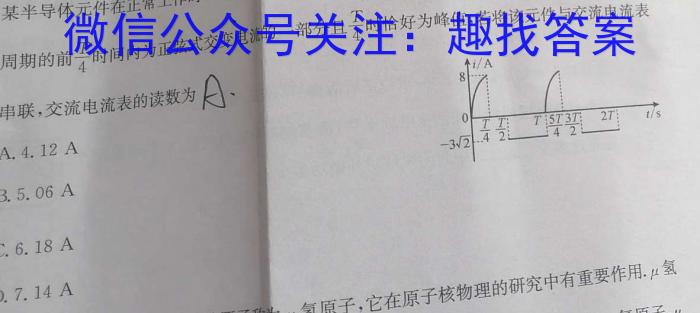 某半导体元件在正常工作时
微信公众号关注：趣找答案
周期的前T/4时间内为正弦式交变电流的一部分且T/4时恰好为峰值.若将该元件与交流电流表
串联,交流电流表的读数为 A.
A. 4. 12 A
B. 5. 06 A
C. 6. 18 A
D. 7. 14 A
i/A
8
0
T/4 T/2 T 5T/4 3T/2 2T t/s
-3√2
氢原子,它在原子核物理的研究中有重要作用. μ氢